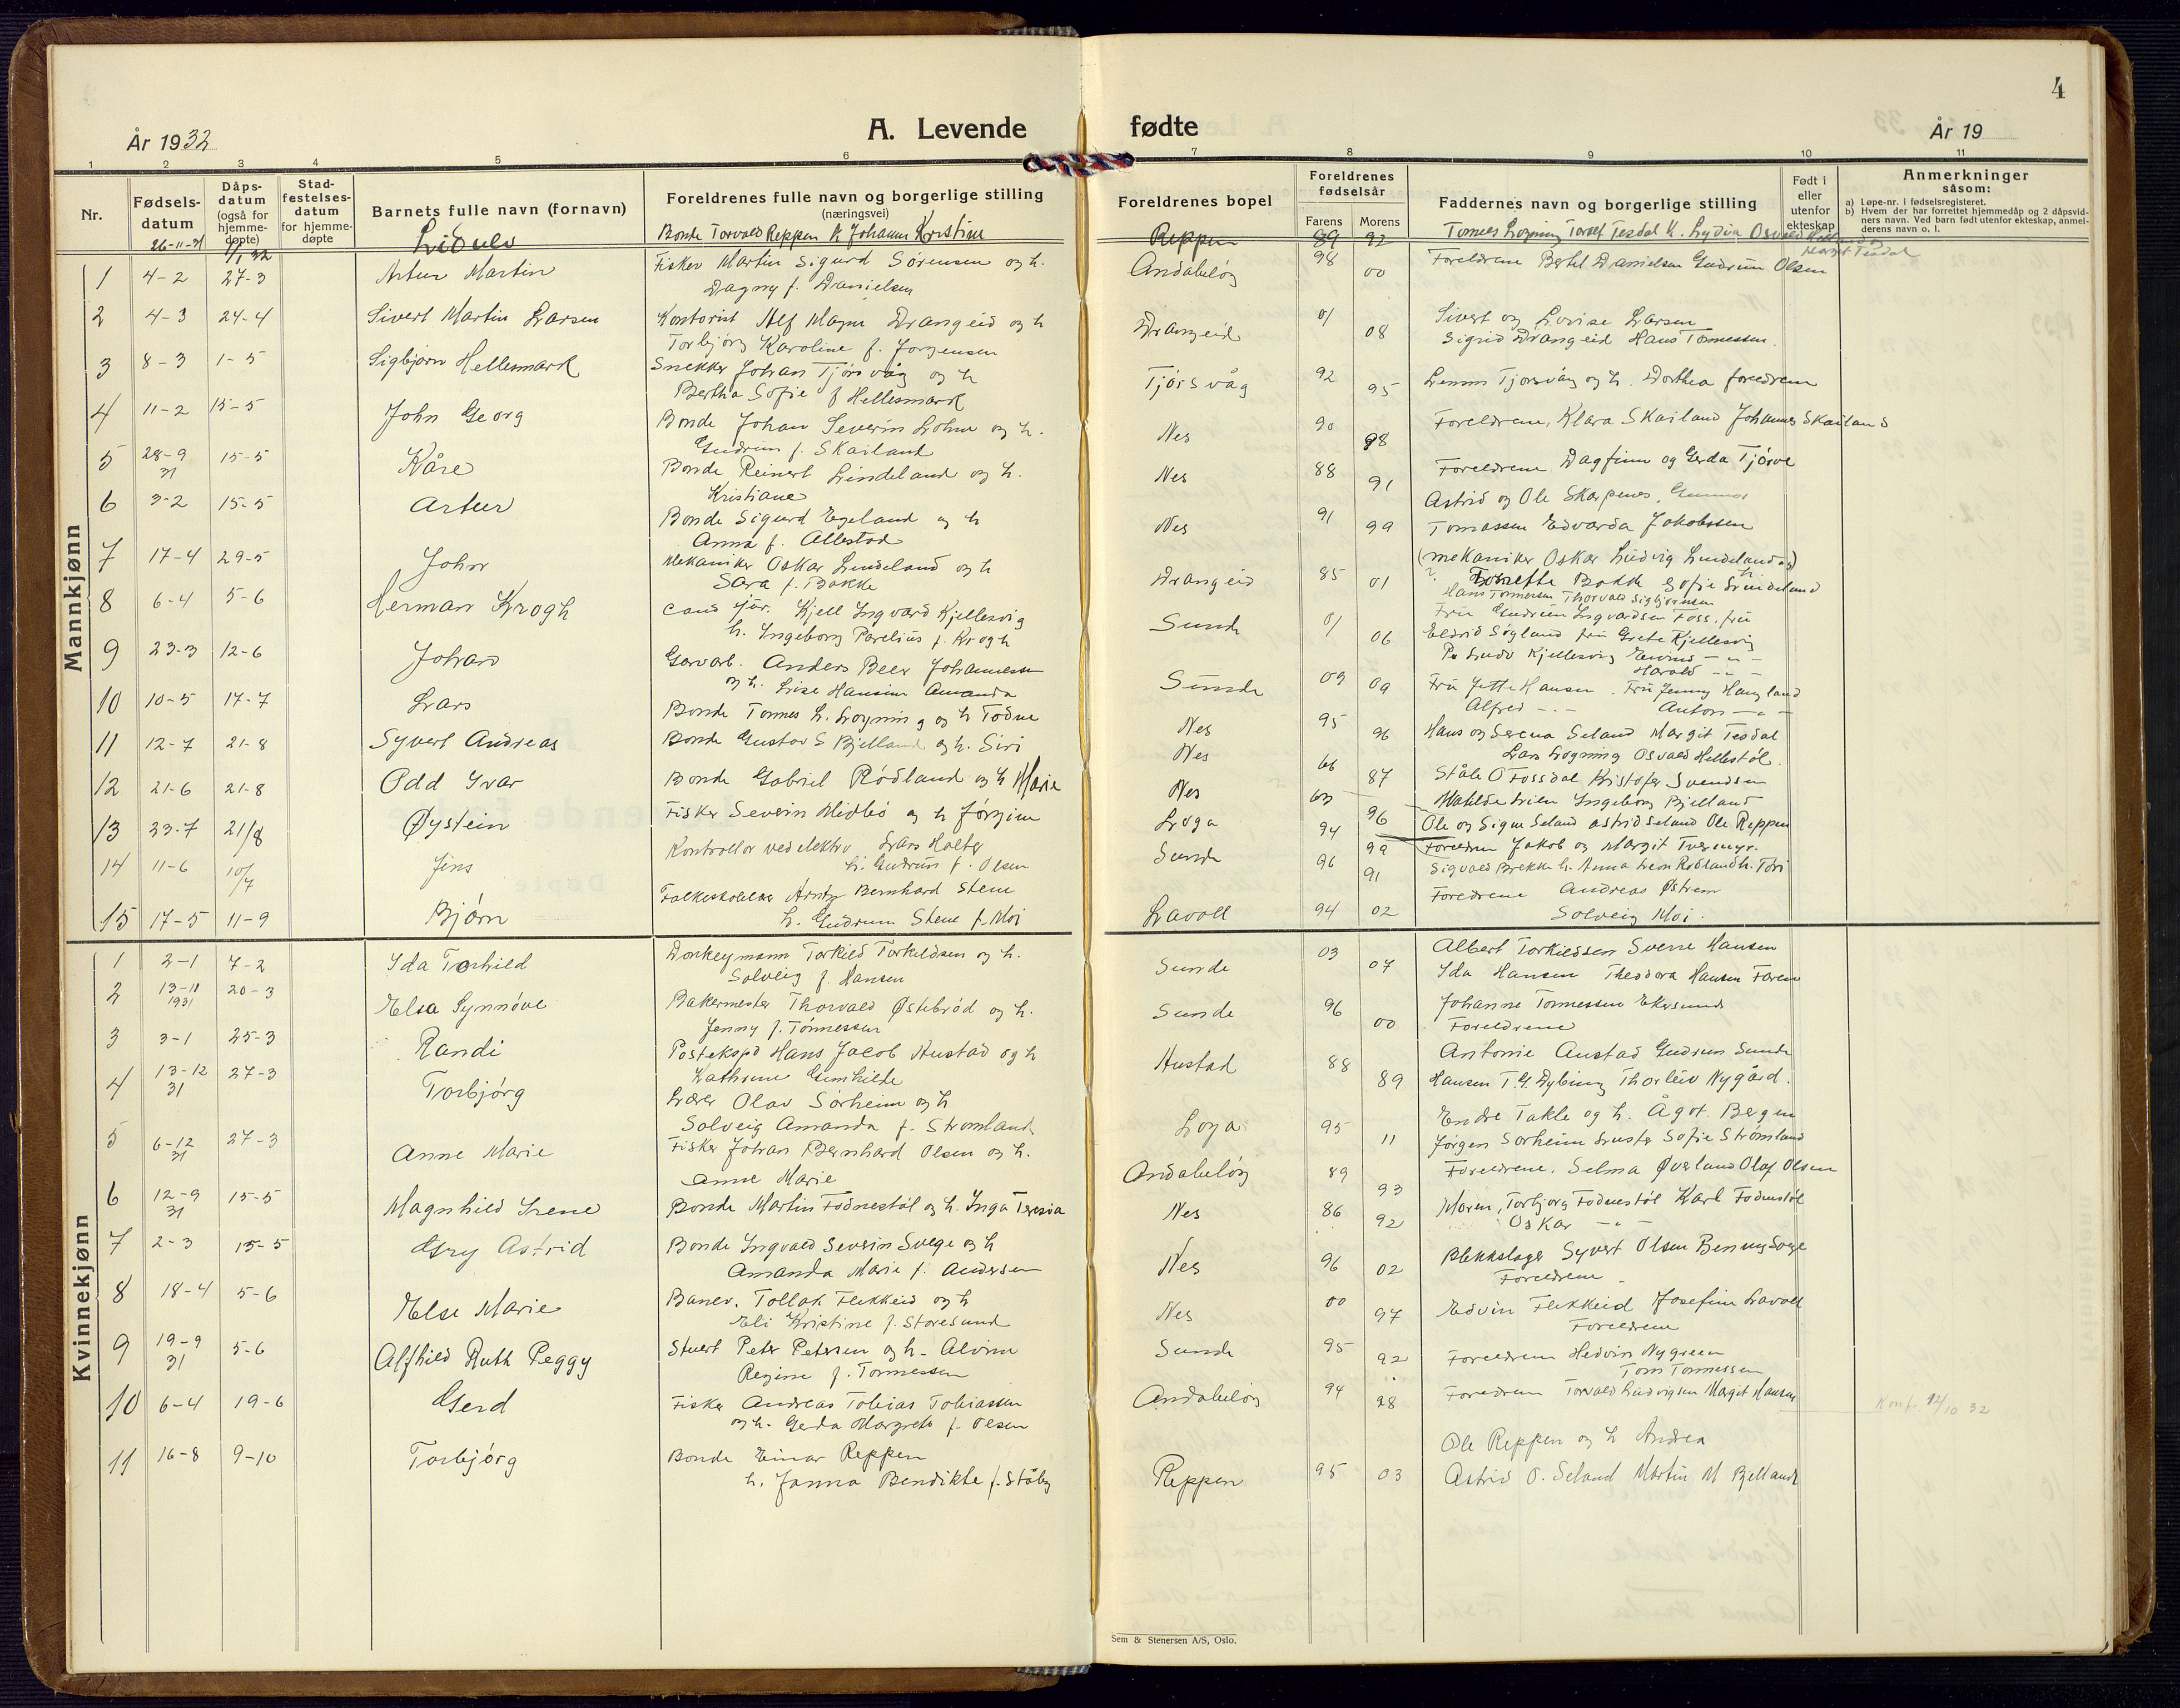 4
År 1932
A. Levende
fødte
År 19
1 2 3 4 5 6 7 8 9 10 11
Nr.
Fødsels-
datum
Dåps-
datum
(også for
hjemme-
døpte)
Stad-
festelses-
datum
for hjemme-
døpte
Barnets fulle navn (fornavn)
Foreldrenes fulle navn og borgerlige stilling
(næringsvei)
Foreldrenes bopel
Foreldrenes
fødselsår
Farens Morens
Faddernes navn og borgerlige stilling
Født i
eller
utenfor
ekteskap
Anmerkninger
såsom:
a) Løpe-nr. i fødselsregisteret.
b) Hvem der har forrettet hjemmedåp og 2 dåpsvid-
ners navn. Ved barn født utenfor ekteskap, anmel-
derens navn o. l.
26-11-31 1/1 32 Bonde Torvald Reppen Johanne Kristine Reppen 89 92
Mannkjønn
1 4-2 27-3 Artur Martin Fisker Martin Sigurd Sørensen og h. Andabeløy 98 00 Foreldrene Bertel Danielsen Gudrun Olsen
Dagny f. Danielsen
2 4-3 24-4 Sivert Martin Larsen Kontorist Alf Magn Drangeid og h Drangeid 01 08 Sivert og Lovise Larsen
Torbjørg Karoline f. Jørgensen Sigrid Drangeid Hans Tønnessen.
3 8-3 1-5 Sigbjørn Hellesmark Snekker Johan Tjørsvåg og h Tjørsvåg 92 95 Tjørsvåg og h. Dorthea foreldrene
Bertha Sofie f Hellesmark
4 11-2 15-5 John Georg Bonde Johan Severin og h. Nes 90 98 Foreldrene, Klara Skailand Johannes Skailand
Gudrun f. Skailand
5 28-9 31 15-5 Kåre Bonde Reinert Lindeland og h. Nes 88 91 Foreldrene Dagfinn og Gerda Tjørve
Kristiane
6 3-2 15-5 Artur Bonde Sigurd Egeland og h Nes 91 99 Astrid og Ole Skarpenes, Gunnar
Anna f. Allestad Tomassen Edvarda Jakobssen
7 17-4 29-5 John Mekaniker Oskar Lindeland og h Drangeid 85 01 (mekaniker Oskar Ludvig Lindeland og)
Sara f. Bakke Bakk Sofie Lindeland
Hans Tønnersen Thorvald Sigbjørnsen
8 6-4 5-6 Herman Krogh cand jur. Kjell Ingvard Kjellesvig Sunde 01 06 Fru Gudrun Ingvardsen Foss, fru
h. Ingeborg Parelius f. Krogh Eldrid Søyland fru Grete Kjellesvig
Kjellesvig
Harald
9 23-3 12-6 Johan Garvarb. Anders Beer Johannesen Sunde 09 09 Fru Jette Hansen. Fru Jenny Haugland
og h. Lise Hansine Amanda Alfred Anton
10 10-5 17-7 Lars Bonde Tønnes L. Løgning og h Todne Nes 95 96 Hans og Serena Seland Margit Tesdal
Lars Løgning Osvald Hellestøl.
11 12-7 21-8 Syvert Andreas Bonde Gustav S Bjelland og h. Siri Nes 87 Ståle O Fossdal Kristofer Svendsen
Ingeborg Bjelland
12 21-6 21-8 Odd Ivar Bonde Gabriel Rødland og h Marie Nes 96 Ole og Signe Seland Astrid Seland Ole Reppen
13 23-7 21/8 Øystein Fisker Severin Midbø og h Jørgine Loga 94 99 Foreldrene Jakob og Margit
14 11-6 10/7 Jens Kontrollør ved elektr. Lars Holter Sunde 96 91 Sigvald Brekke h. Anna
h. Gudrun f. Olsen
15 17-5 11-9 Bjørn Folkeskolelærer Bernhard Stene Lavoll 94 02 Foreldrene Andreas Østrem
h. Gudrun Stene f. Moi Solveig Moi.
Kvinnekjønn
1 2-1 7-2 Ida Torhild Donkeymann Torkild Torkildsen og h. Sunde 03 07 Albert Torkildsen Sverre Hansen
Solveig f. Hansen Ida Hansen Theodora Hansen
2 13-11 1931 20-3 Elsa Synnøve Bakermester Thorvald Østebrød og h. Sunde 96 00 Johanne Tønnessen Ekersund
Jenny f. Tønnessen Foreldrene
3 3-1 25-3 Randi Postekspd Hans Jacob Austad og h Austad 88 89 Antonie Austad Gudrun Sunde
Kathrine Gunhilde Hansen T. G. Dybing Thorleiv Nygård.
4 13-12 31 27-3 Torbjørg Lærer Olav Sørheim og h Loga 95 11 Endre Takle og h. Ågot. Bergen
Solveig Amanda f. Strømland Jørgen Sørheim Luster Sofie Strømland
5 6-12 31 27-3 Anne Marie Fisker Johan Bernhard Olsen og h. Andabeløy 89 93 Foreldrene. Selma Øverland Olaf Olsen
Anne Marie
6 12-9 31 15-5 Magnhild Irene Bonde Martin Fodnestøl og h. Inga Teresia Nes 86 92 Moren, Torbjørg Fodnestøl Karl Fodnestøl
Oskar
7 2-3 15-5 Gry Astrid Bonde Ingvald Severin Svege og h Nes 96 02 Blikkslager Syvert Olsen Benny Svege
Amanda Marie f. Andersen Foreldrene
8 18-4 5-6 Else Marie Banev. Tollak Flikkeid og h Nes 00 97 Edvin Flikkeid Josefine Lavoll
Eli Kristine f. Storesund Foreldrene
9 19-9 31 5-6 Alfhild Ruth Peggy Stuert Peter Petersen og h. Alvine Sunde 95 92 Foreldrene Hedvin Nygreen
Regine f. Tønnessen Tom Tønnessen
10 6-4 19-6 Gerd Fisker Andreas Tobias Tobiassen Andabeløy 94 98 Foreldrene Torvald Ludvigsen Margit Hansen
og h. Gerda Margrete f. Olsen
Konf. 12/10 32
11 16-8 9-10 Torbjørg Bonde Einar Reppen Reppen 95 03 Ole Reppen og h Andrea
h. Janna Bendikte f. Ståby Astrid O. Seland Martin M Bjelland
Sem & Stenersen A/S, Oslo.